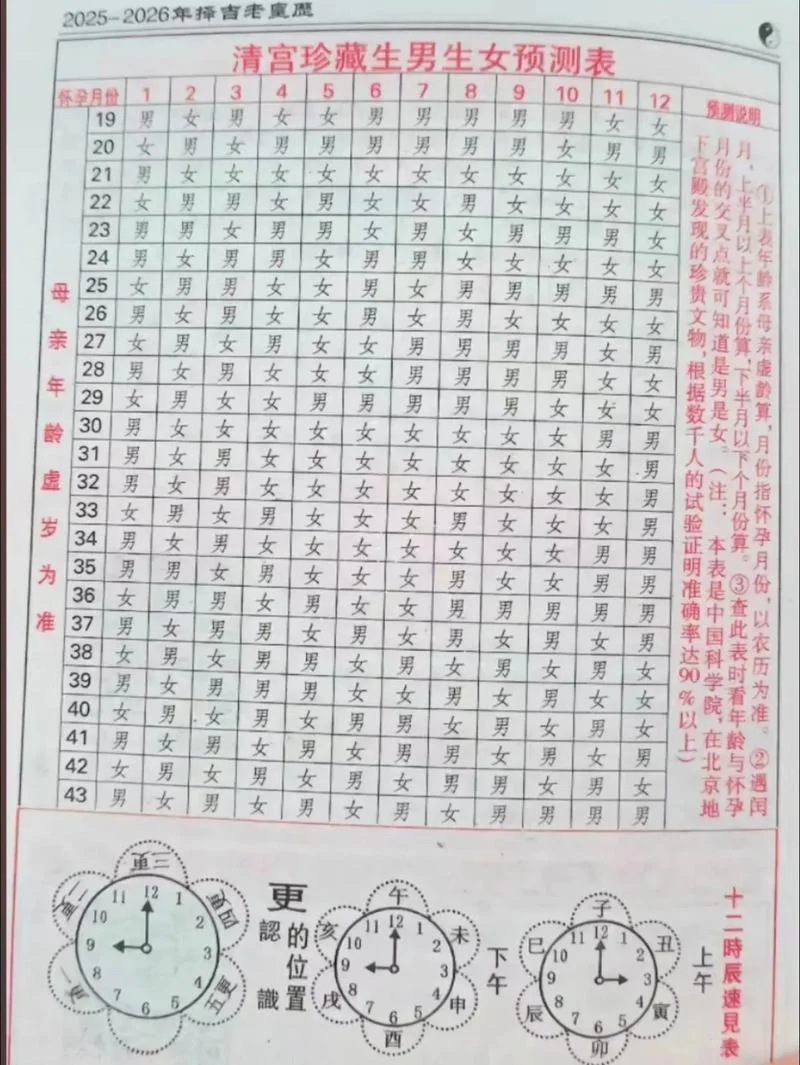 2025-2026年择吉老皇歷
清宫珍藏生男生女预测表
怀孕月份 1 2 3 4 5 6 7 8 9 10 11 12
母亲年龄虚岁为准
19 男 女 男 女 女 男 男 男 男 男 女 女
20 女 男 女 男 男 男 男 男 男 女 男 男
21 男 女 女 女 女 女 女 女 女 女 女 女
22 女 男 男 女 男 女 女 男 女 女 女 女
23 男 男 女 男 男 女 男 女 男 男 男 女
24 男 女 男 男 女 男 男 女 女 女 女 女
25 女 男 男 女 女 男 女 男 男 男 男 男
26 男 女 男 女 女 男 女 男 女 女 女 女
27 女 男 女 男 女 女 男 男 男 男 女 男
28 男 女 男 女 女 女 男 男 男 男 女 女
29 女 男 女 女 男 男 男 男 男 女 女 女
30 男 女 女 女 女 女 女 女 女 女 男 男
31 男 女 男 女 女 女 女 女 女 女 女 男
32 男 女 男 女 女 女 女 女 女 女 女 男
33 女 男 女 男 女 女 女 男 女 女 女 男
34 男 女 男 女 女 女 女 女 女 女 男 男
35 男 男 女 男 女 女 女 男 女 女 男 男
36 女 男 男 女 男 女 女 男 男 男 男 男
37 男 女 男 男 女 男 女 男 女 男 女 男
38 女 男 女 男 男 女 男 女 男 女 男 女
39 男 女 男 男 男 女 女 男 女 男 女 女
40 女 男 女 男 女 男 男 女 男 女 男 女
41 男 女 男 女 男 女 男 男 女 男 女 男
42 女 男 女 男 女 男 女 男 男 女 男 女
43 男 女 男 女 男 女 男 女 男 男 男 男
预测说明
①上表年龄系母亲虚龄算,月份指怀孕月份,以农历为准。②遇闰
月,上半月以上个月份算,下半月以下个月份算。③查此表时看年龄与怀孕
月份的交叉点就可知道是男是女。(注:本表是中国科学院,在北京地
下宫殿发现的珍贵文物,根据数千人的试验证明准确率达90%以上)
十二時辰速見表
上午
子 丑 寅 卯 辰 巳
12 1 2 3 4 5 6 7 8 9 10 11
下午
午 未 申 酉 戌 亥
12 1 2 3 4 5 6 7 8 9 10 11
更的位置
認識
三更 四更 五更
12 1 2 3 4 5 6 7 8 9 10 11